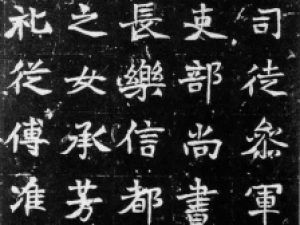 司徒叅軍
吏部尚書
長樂信都
之女承芳
礼從傅准